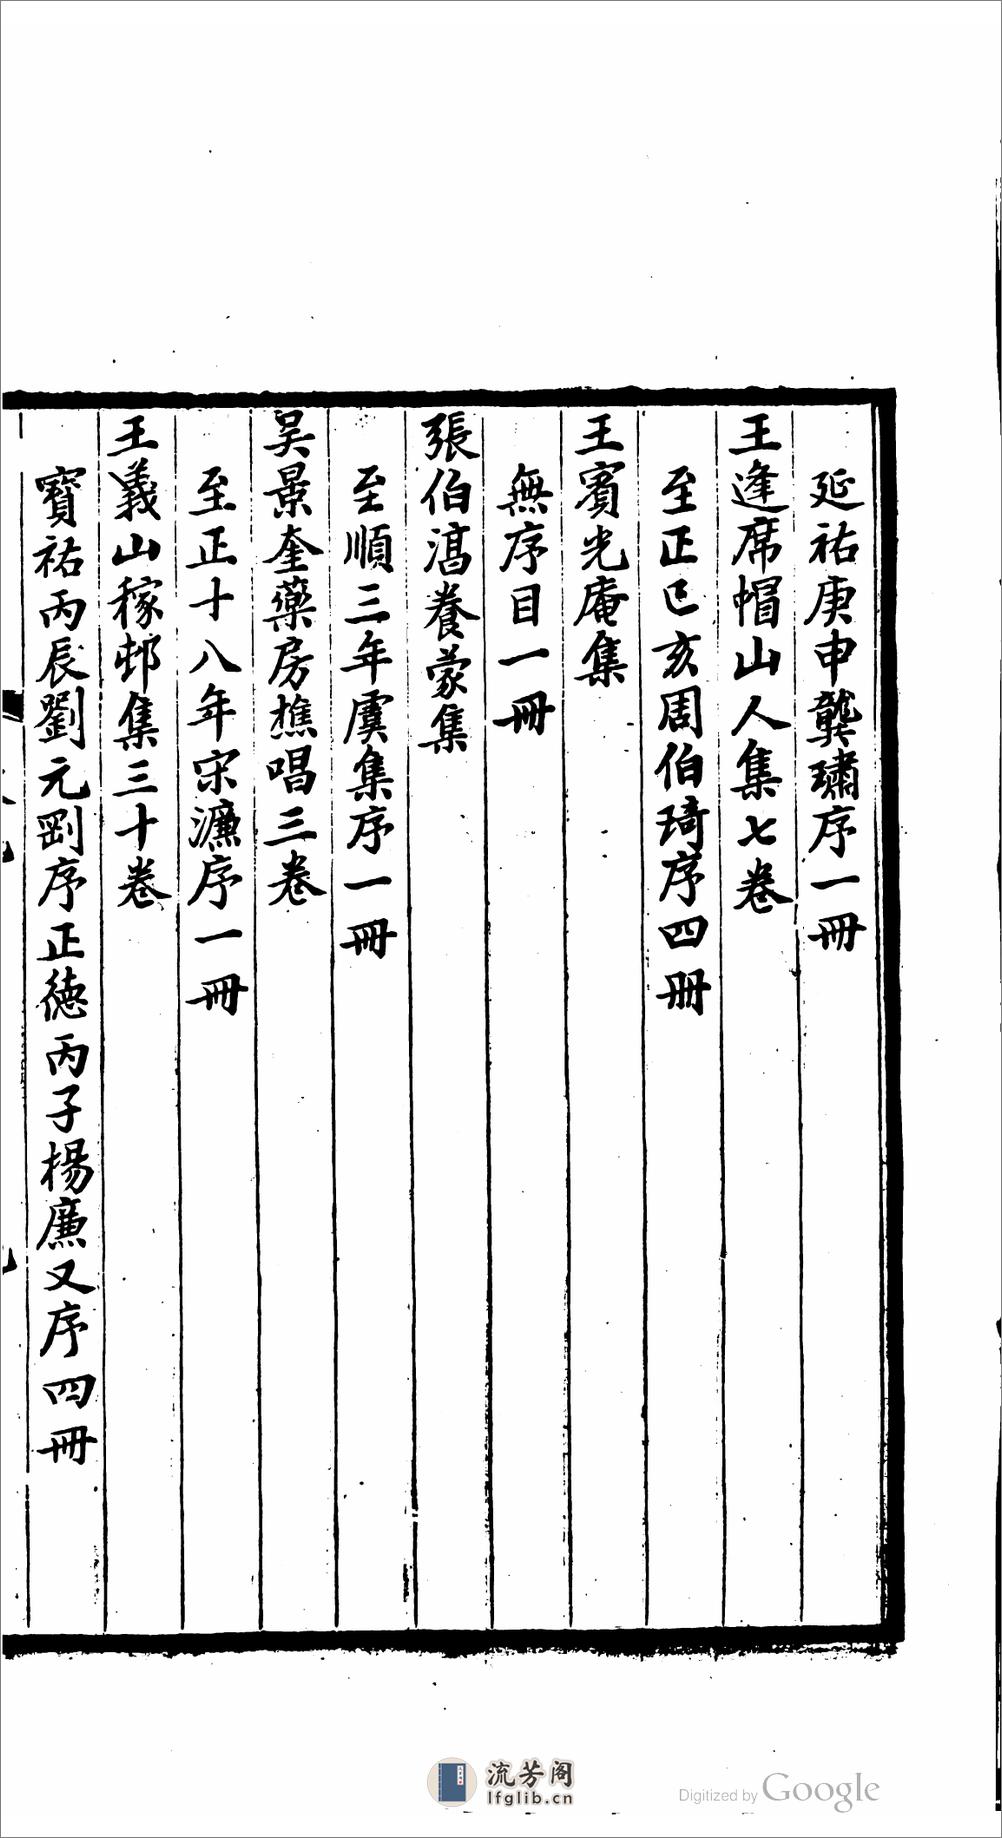 延祐庚申龔璛序一冊
王逢席帽山人集七卷
至正己亥周伯琦序四冊
王賓光庵集
無序目一冊
張伯淳養蒙集
至順三年虞集序一冊
吴景奎藥房樵唱三卷
至正十八年宋濂序一冊
王義山稼邨集三十卷
寶祐丙辰劉元剛序正德丙子楊廉又序四冊
流芳阁
lfglib.cn
Digitized by Google